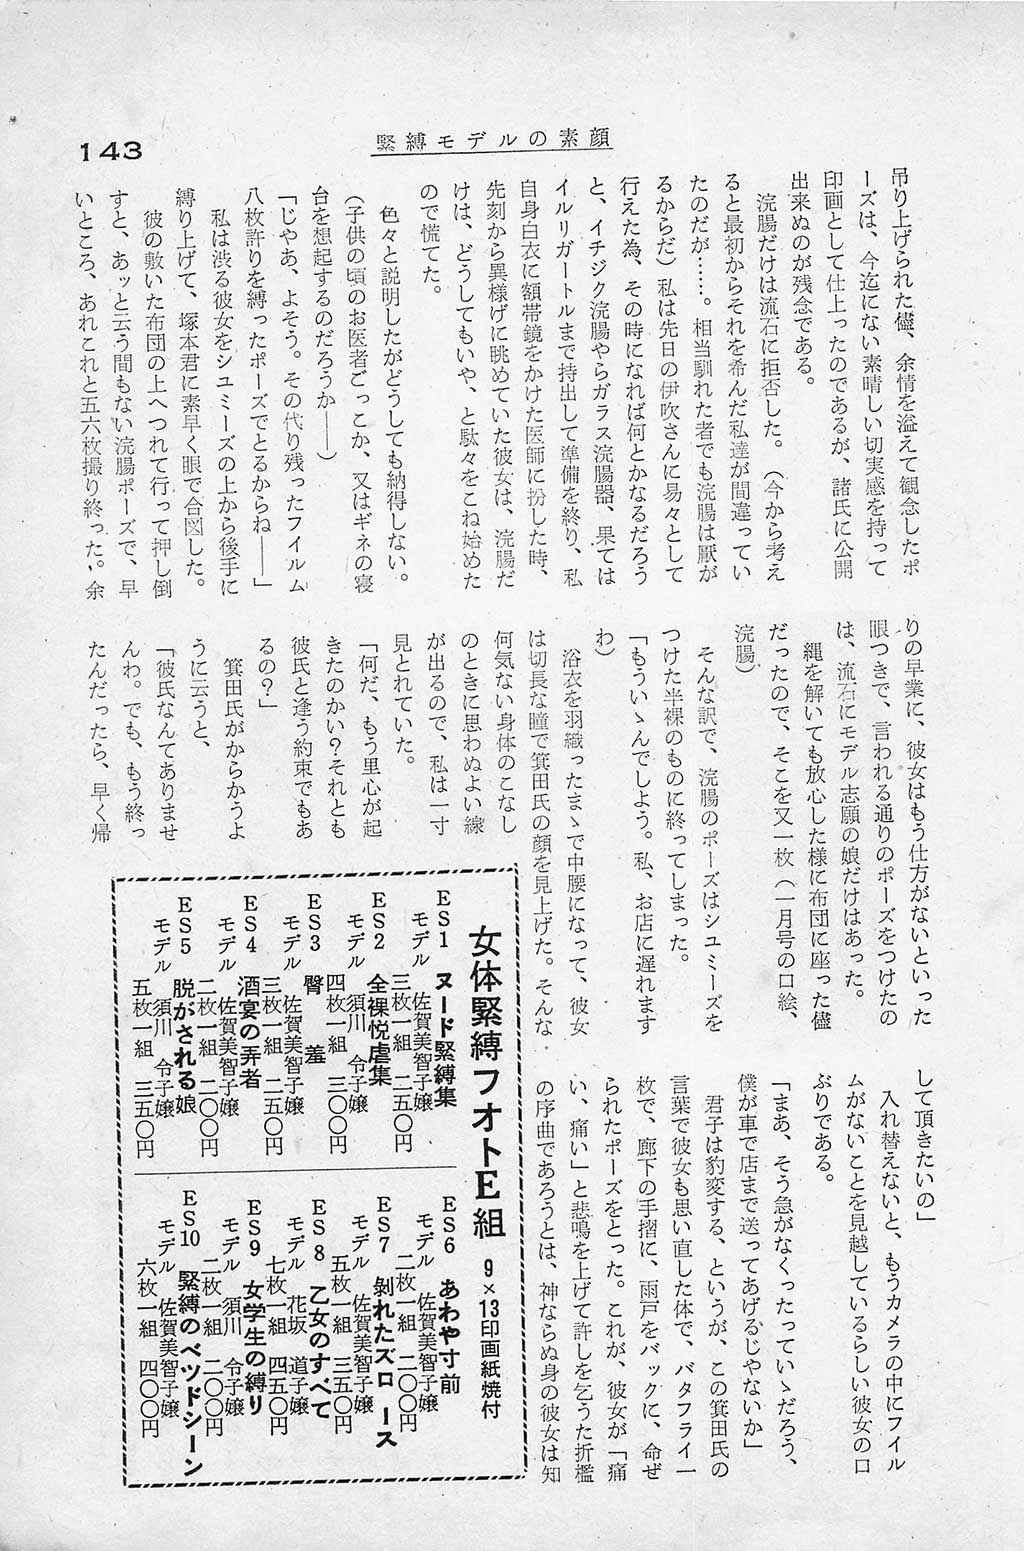 143
緊縛モデルの素顔
吊り上げられた儘、余情を溢えて観念したポ
ーズは、今迄にない素晴しい切実感を持って
印画として仕上ったのであるが、諸氏に公開
出来ぬのが残念である。
浣腸だけは流石に拒否した。（今から考え
ると最初からそれを希んだ私達が間違ってい
たのだが……。相当馴れた者でも浣腸は厭が
るからだ）私は先日の伊吹さんに易々として
行えた為、その時になれば何とかなるだろう
と、イチジク浣腸やらガラス浣腸器、果ては
イルリガートルまで持出して準備を終り、私
自身白衣に額帯鏡をかけた医師に扮した時、
先刻から異様げに眺めていた彼女は、浣腸だ
けは、どうしてもいや、と駄々をこね始めた
ので慌てた。
色々と説明したがどうしても納得しない。
（子供の頃のお医者ごっこか、又はギネの寝
台を想起するのだろうか――）
「じゃあ、よそう。その代り残ったフイルム
八枚許りを縛ったポーズでとるからね――」
私は渋る彼女をシユミーズの上から後手に
縛り上げて、塚本君に素早く眼で合図した。
彼の敷いた布団の上へつれて行って押し倒
すと、あッと云う間もない浣腸ポーズで、早
いところ、あれこれと五六枚撮り終った。余
りの早業に、彼女はもう仕方がないといった
眼つきで、言われる通りのポーズをつけたの
は、流石にモデル志願の娘だけはあった。
縄を解いても放心した様に布団に座った儘
だったので、そこを又一枚（一月号の口絵、
浣腸）
そんな訳で、浣腸のポーズはシユミーズを
つけた半裸のものに終ってしまった。
「もういゝんでしよう。私、お店に遅れます
わ）
浴衣を羽織ったまゝで中腰になって、彼女
は切長な瞳で箕田氏の顔を見上げた。そんな
何気ない身体のこなし
のときに思わぬよい線
が出るので、私は一寸
見とれていた。
「何だ、もう里心が起
きたのかい？それとも
彼氏と逢う約束でもあ
るの？」
箕田氏がからかうよ
うに云うと、
「彼氏なんてありませ
んわ。でも、もう終っ
たんだったら、早く帰
して頂きたいの」
入れ替えないと、もうカメラの中にフイル
ムがないことを見越しているらしい彼女の口
ぶりである。
「まあ、そう急がなくったっていゝだろう、
僕が車で店まで送ってあげるじゃないか」
君子は豹変する、というが、この箕田氏の
言葉で彼女も思い直した体で、バタフライ一
枚で、廊下の手摺に、雨戸をバックに、命ぜ
られたポーズをとった。これが、彼女が「痛
い、痛い」と悲鳴を上げて許しを乞うた折檻
の序曲であろうとは、神ならぬ身の彼女は知
女体緊縛フオトE組 9×13印画紙焼付
ES1 ヌード緊縛集
モデル 佐賀美智子嬢
三枚一組 二五〇円
ES2 全裸悦虐集
モデル 須川 令子嬢
四枚一組 三〇〇円
ES3 臀 羞
モデル 佐賀美智子嬢
三枚一組 二五〇円
ES4 酒宴の弄者
モデル 佐賀美智子嬢
二枚一組 二〇〇円
ES5 脱がされる娘
モデル 須川 令子嬢
五枚一組 三五〇円
ES6 あわや寸前
モデル 佐賀美智子嬢
二枚一組 二〇〇円
ES7 剝れたズロース
モデル 佐賀美智子嬢
五枚一組 三五〇円
ES8 乙女のすべて
モデル 花坂 道子嬢
七枚一組 四五〇円
ES9 女学生の縛り
モデル 須川 令子嬢
二枚一組 二〇〇円
ES10 緊縛のベツドシーン
モデル 佐賀美智子嬢
六枚一組 四〇〇円